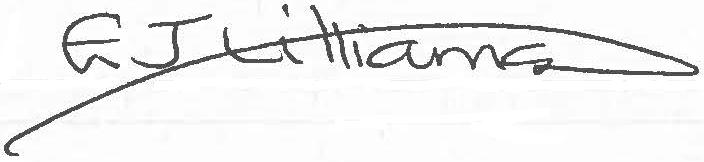 E J Williams